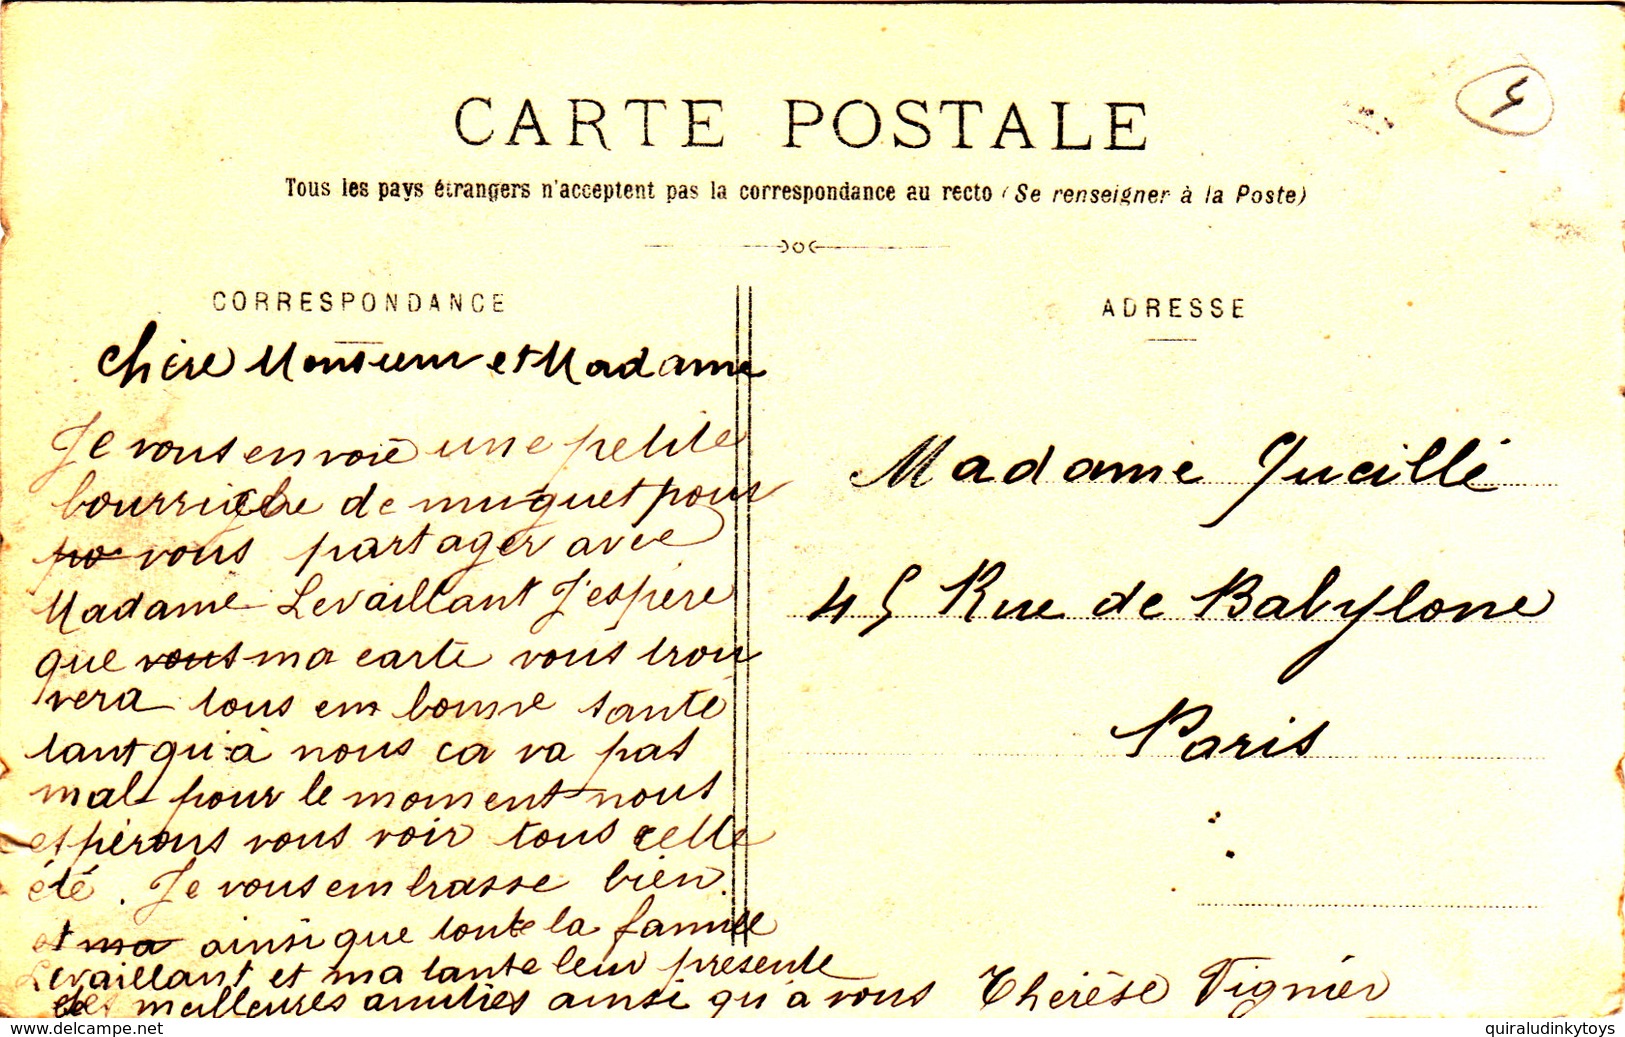 CARTE POSTALE
Tous les pays étrangers n'acceptent pas la correspondance au recto (Se renseigner à la Poste)
CORRESPONDANCE
chère Monsieur et Madame
Je vous envoie une petite
bourriche de muguet pour
po vous partager avec
Madame Levaillant J'espère
que vous ma carte vous trou
vera tous en bonne santé
tant qu'à nous ca va pas
mal pour le moment nous
espérons vous voir tous cette
été. Je vous embrasse bien.
et ma ainsi que toute la famille
Levaillant et ma tante leur présente
des meilleures amitiés ainsi qu'à vous Thérèse Vignier
ADRESSE
Madame Jucillé
45 Rue de Babylone
Paris
www.delcampe.net
quiraludinkytoys